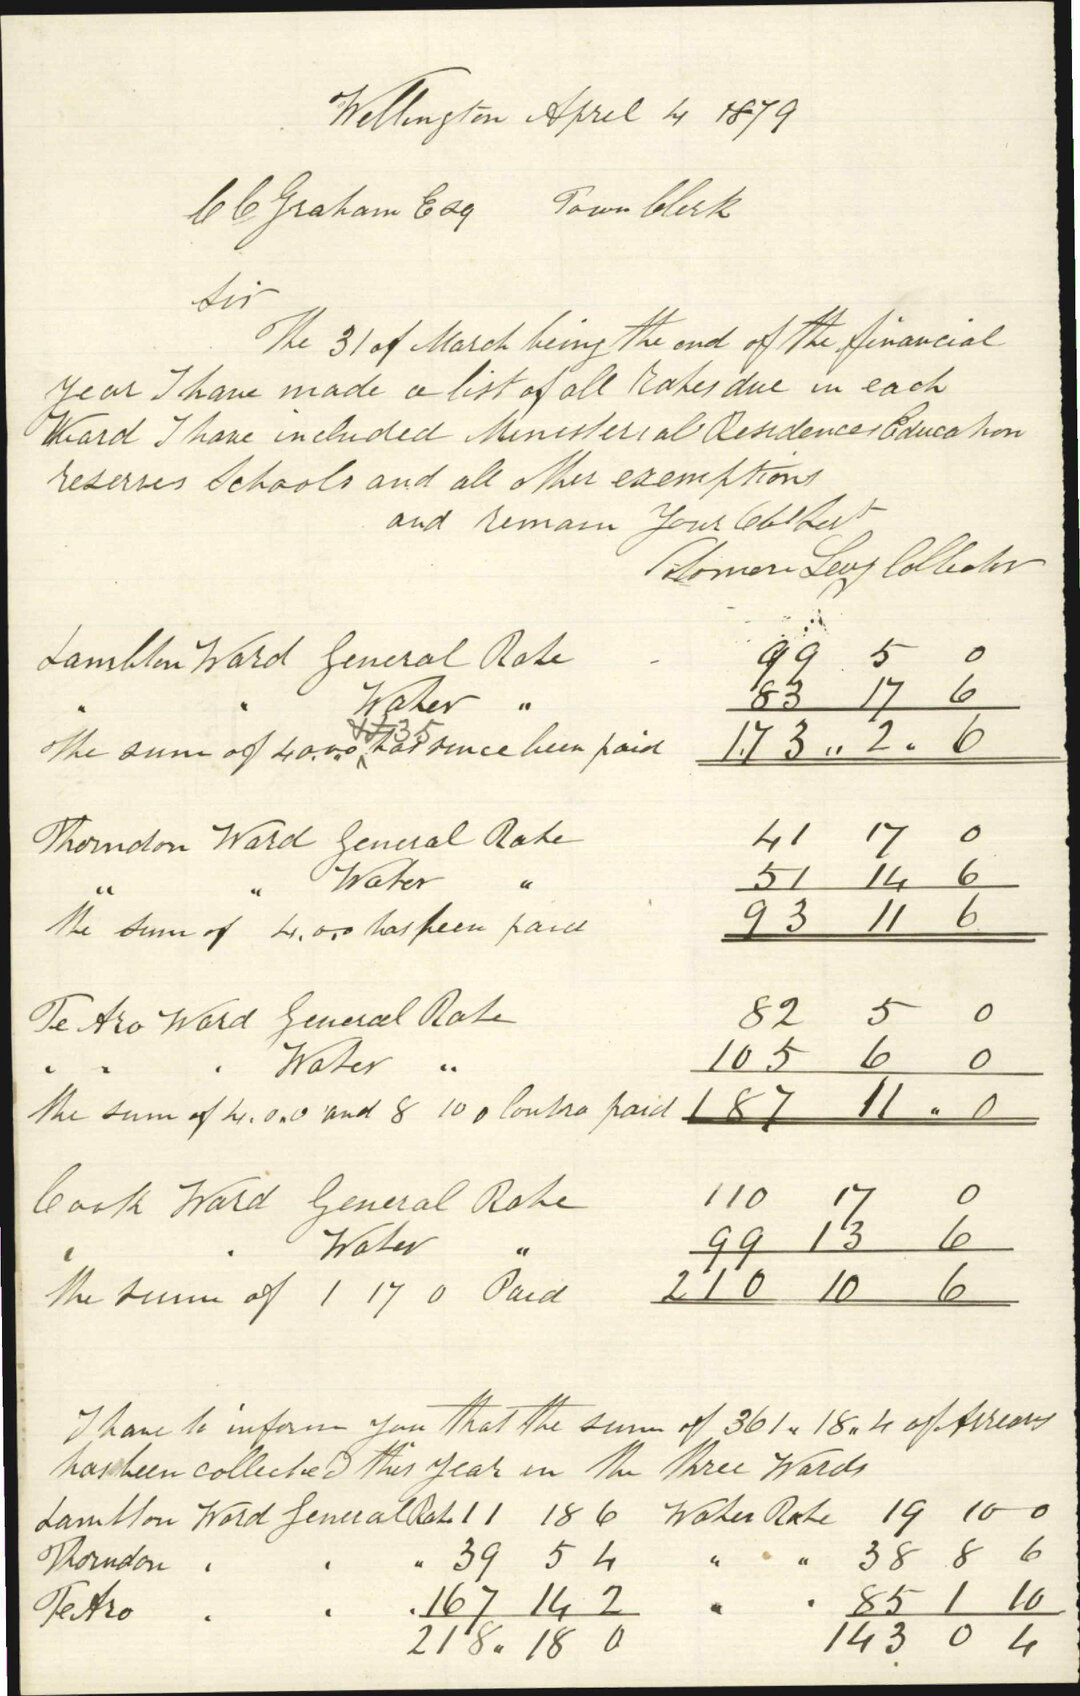 Wellington April 4 1879
C C Graham Esq Town Clerk
Sir
The 31 of March being the end of the financial
year I have made a list of all Rates due in each
Ward I have included Ministerial Residences Education
reserves Schools and all other exemptions
and remain Your Obt Sert
Solomon Levy Collector
Lambton Ward General Rate 99 5 0
" " Water " 83 17 6
The sum of 40.0.0 has since been paid 173 " 2 " 6
Thorndon Ward General Rate 41 17 0
" " Water " 51 14 6
The sum of 4.0.0 has been paid 93 11 6
Te Aro Ward General Rate 82 5 0
" " " Water " 105 6 0
The sum of 4.0.0 and 8 10 0 Contra paid 187 11 " 0
Cook Ward General Rate 110 17 0
" " Water " 99 13 6
The sum of 1 17 0 Paid 210 10 6
I have to inform you that the sum of 361 " 18 " 4 of Arrears
has been collected this year in the three Wards
Lambton Ward General Rate 11 18 6 Water Rate 19 10 0
Thorndon " " " 39 5 4 " " 38 8 6
Te Aro " " " 167 14 2 " " 85 1 10
218 " 18 0 143 0 4